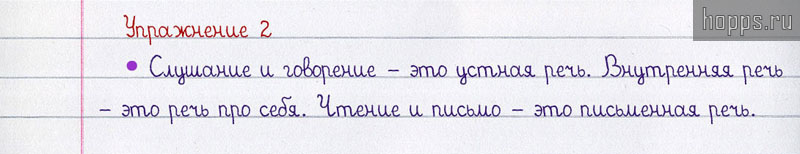 hopps.ru
Упражнение 2
• Слушание и говорение – это устная речь. Внутренняя речь
– это речь про себя. Чтение и письмо – это письменная речь.